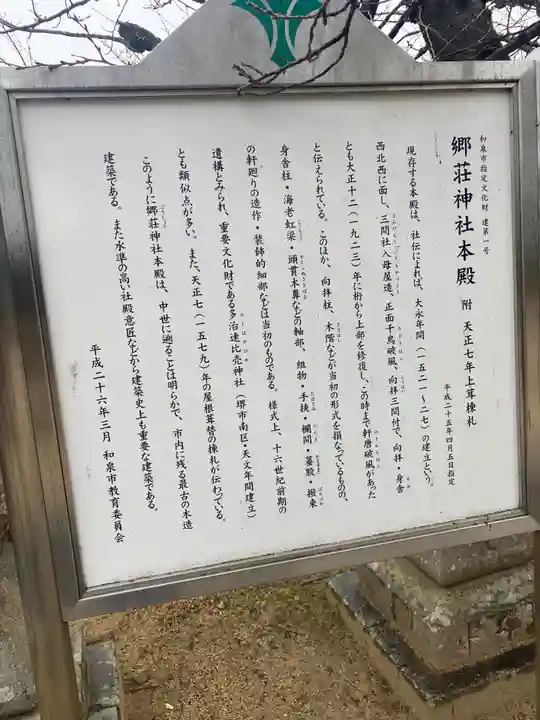 和泉市指定文化財 建第一号
郷荘神社本殿 附 天正七年上葺棟札
平成二十五年四月五日指定
現存する本殿は、社伝によれば、大永年間(一五二一~二七)の建立という。
西北西に面し、三間社入母屋造、正面千鳥破風、向拝三間付で、向拝・身舎
とも大正十二(一九二三)年に桁から上部を修復し、この時まで軒唐破風があった
と伝えられている。このほか、向拝柱、木階などが当初の形式を損なっているものの、
身舎柱・海老虹梁・頭貫木鼻などの軸部、組物・手挟・欄間・蟇股・撥束
の軒廻りの造作・装飾的細部などは当初のものである。様式上、十六世紀前期の
遺構とみられ、重要文化財である多治速比売神社(堺市南区・天文年間建立)
とも類似点が多い。また、天正七(一五七九)年の屋根葺替の棟札が伝わっている。
このように郷荘神社本殿は、中世に遡ることは明らかで、市内に残る最古の木造
建築である。また水準の高い社殿意匠などから建築史上も重要な建築である。
平成二十六年三月 和泉市教育委員会